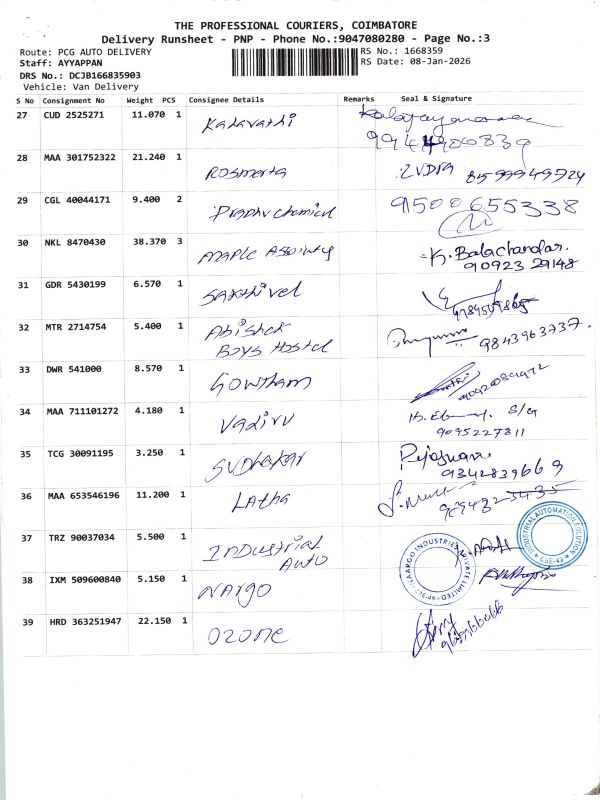 THE PROFESSIONAL COURIERS, COIMBATORE
Delivery Runsheet - PNP - Phone No.:9047080280 - Page No.:3
Route: PCG AUTO DELIVERY RS No.: 1668359
Staff: AYYAPPAN RS Date: 08-Jan-2026
DRS No.: DCJB166835903
Vehicle: Van Delivery
S No Consignment No Weight PCS Consignee Details Remarks Seal & Signature
27 CUD 2525271 11.070 1 Kalavathi
28 MAA 301752322 21.240 1 Rosmerta
29 CGL 40044171 9.400 2 Prabhu chemical 9500655338
30 NKL 8470430 38.370 3 MAPLE K. Balachandar.
90923 29148
31 GDR 5430199 6.570 1 SAKthivel
32 MTR 2714754 5.400 1 Abishek
Boys Hostel 9843963737.
33 DWR 541000 8.570 1 Gowtham
34 MAA 711101272 4.180 1
9095227811
35 TCG 30091195 3.250 1 SUDhakar
9342839669
36 MAA 653546196 11.200 1 LAtha
37 TRZ 90037034 5.500 1 INDustrial
AUTO
INDUSTRIAL AUTOMATION SOLUTION
CBE-49
38 IXM 509600840 5.150 1 NARgo
NAARGO INDUSTRIES PRIVATE LIMITED
39 HRD 363251947 22.150 1 OZone